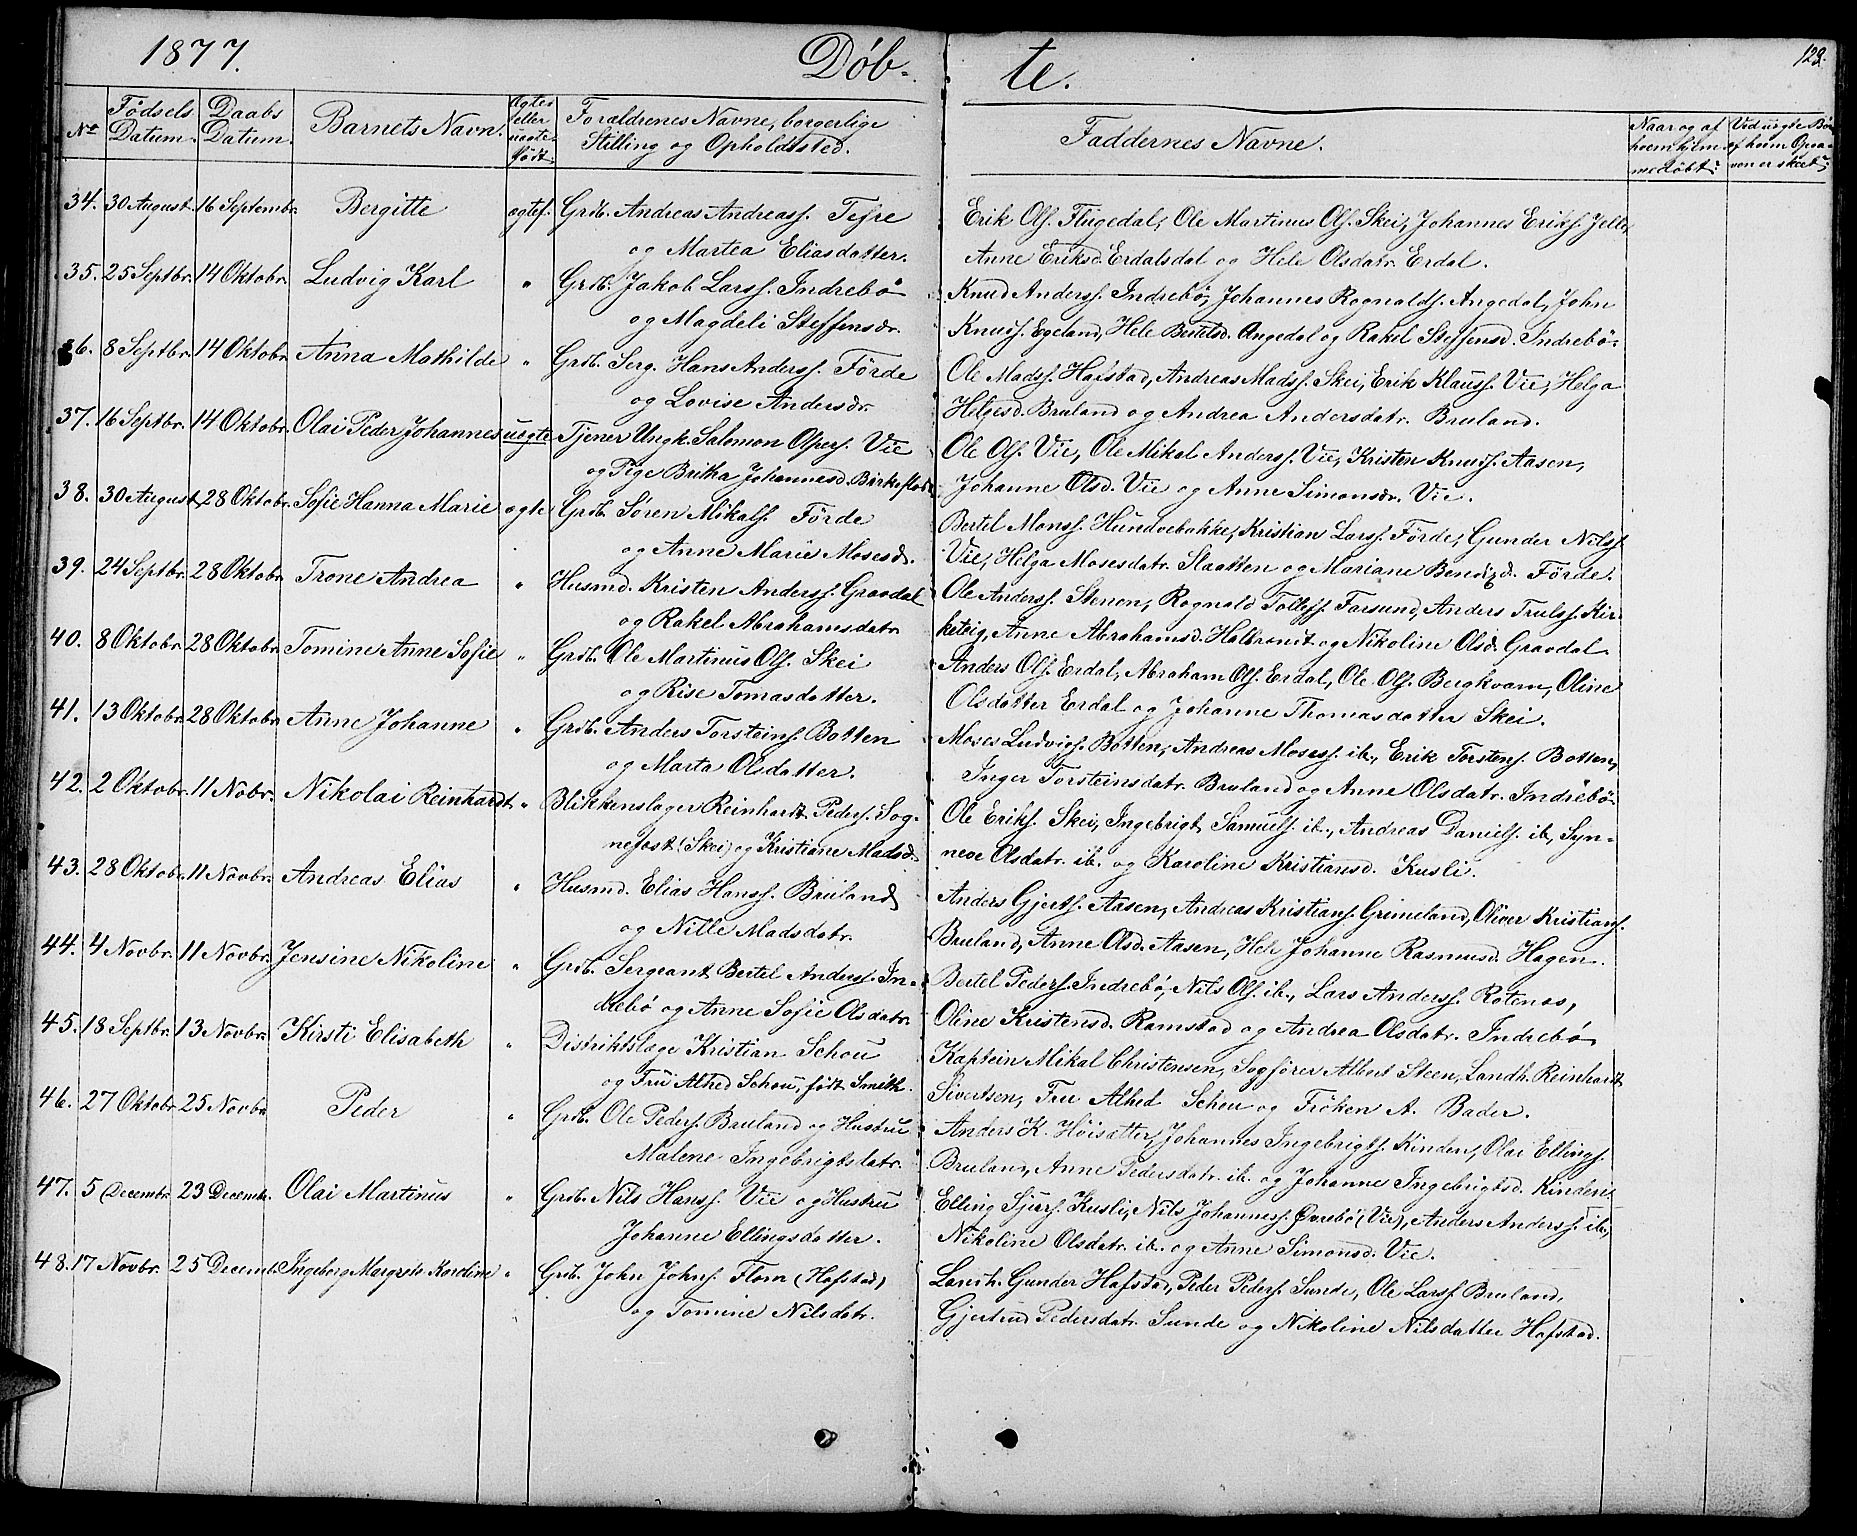 1877. Døb- te. 128.
No Fødsels Datum. Daabs Datum. Barnets Navn. Ægte eller uegte født. Forældrenes Navne, borgerlige Stilling og Opholdssted. Faddernes Navne. Naar og af hvem hjemmedøbt? Ved uegte Børn af hvem Opgaven er skeet?
34. 30 August. 16 Septembr. Bergitte ægtef. Grdb. Andreas Andreass. Tefre
og Martea Eliasdatter.
Erik Ols. Flugedal, Ole Martinus Ols. Skei, Johannes Eriks. Jelle,
Anne Eriksd. Erdalsdal og Hele Olsdatr. Erdal.
35. 25 Septbr. 14 Oktobr. Ludvig Karl " Grdb. Jakob Larss. Indrebö
og Magdeli Steffensdr.
Knud Anderss. Indrebö, Johannes Rognalds. Angedal, John
Knuds. Egeland, Hele Bertelsd. Angedal og Rakel Steffensd. Indrebö.
36. 8 Septbr. 14 Oktobr. Anna Mathilde " Grdb. Serg. Hans Anderss. Förde
og Lovise Andersdr.
Ole Madss. Hafstad, Andreas Madss. Skei, Erik Klauss. Vie, Helga
Helgesd. Bruland og Andrea Andersdatr. Bruland.
37. 16 Septbr. 14 Oktobr. Olai Peder Johannes uegte Tjener Ungk. Salomon Vie
og Pige Britha Johannesd. Birkeflod
Ole Ols. Vie, Ole Mikal Anderss. Vie, Kristen Knuds. Aasen,
Johanne Olsd. Vie og Anne Simonsdr. Vie.
38. 30 August. 28 Oktobr. Sofie Hanna Marie ægte Grdb. Sören Mikals. Förde
og Anne Marie Mosesd.
Bertel Monss. Hundvebakke, Kristian Larss. Förde, Gunder Nilss.
Vie, Helga Mosesdatr. Slaatten og Mariane Bendixd. Förde.
39. 24 Septbr. 28 Oktobr. Trone Andrea " Husmd. Kristen Anderss. Gravdal
og Rakel Abrahamsdatr.
Ole Anderss. Stenen, Rognald Tollefss. Farsund, Anders Trulss. Kir-
keteig, Anne Abrahamsd. Halbrenit og Nikoline Olsd. Gravdal.
40. 8 Oktobr. 28 Oktobr. Tomine Anne Sofie " Grdb. Ole Martinus Ols. Skei
og Rise Tomasdatter.
Anders Ols. Erdal, Abraham Ols. Erdal, Ole Ols. Bergkvam, Oline
Olsdatter Erdal og Johanne Thomasdatter Skei.
41. 13 Oktobr. 28 Oktobr. Anne Johanne " Grdb. Anders Torsteins. Botten
og Marta Olsdatter.
Moses Ludvigs. Botten, Andreas Mosess. ib., Erik Torstens. Botten,
Inger Torsteinsdatr. Bruland og Anne Olsdatr. Indrebö.
42. 2 Oktobr. 11 Nobr. Nikolai Reinhardt " Blikkenslager Reinhardt Peders. Sog-
nefost (Skei) og Kristiane Madsd.
Ole Eriks. Skei, Ingebrigt Samuels. ib., Andreas Daniels. ib., Syn-
neve Olsdatr. ib. og Karoline Kristiansd. Kusli.
43. 28 Oktobr. 11 Novbr. Andreas Elias " Husmd. Elias Hanss. Bruland
og Nille Madsdatr.
Anders Gjerts. Aasen, Andreas Kristians. Grimeland, Oliver Kristians.
Bruland, Anne Olsd. Aasen, Hele Johanne Rasmusd. Hagen.
44. 4 Novbr. 11 Novbr. Jensine Nikoline " Grdb. Sergeant Bertel Anderss. In-
drebö og Anne Sofie Olsdatr.
Bertel Peders. Indrebö, Nils Ols. ib., Lars Anderss. Rotenes,
Oline Kristensd. Ramstad og Andrea Olsdatr. Indrebö.
45. 18 Septbr. 13 Novbr. Kirsti Elisabeth " Distriktslæge Kristian Schou
og Fru Alhed Schou, født Smith.
Kaptein Mikal Christensen, Sogfører Albert Steen, Landh. Reinhardt
Sivertsen, Fru Alhed Schou og Fröken A. Bader.
46. 27 Oktobr. 25 Novbr. Peder " Grdb. Ole Peders. Bruland og Hustru
Malene Ingebrigtsdatr.
Anders K. Höisætter, Johannes Ingebrigts. Kinden, Olai Ellings.
Bruland, Anne Pedersdatr. ib. og Johanne Ingebrigtsd. Kinden.
47. 5 Decembr. 23 Decembr. Olai Martinus " Grdb. Nils Hanss. Vie og Hustru
Johanne Ellingsdatter.
Elling Sjurs. Kusli, Nils Johanness. Øvrebö (Vie), Anders Anderss. ib.,
Nikoline Olsdatr. ib. og Anne Simonsd. Vie.
48. 17 Novbr. 25 Decembr. Ingeborg Margrete Karoline " Grdb. John Johns. Flom (Hafstad)
og Tomine Nilsdatr.
Landh. Gunder Hafstad, Peder Peders. Sunde, Ole Larss. Bruland,
Gjertrud Pedersdatr. Sunde og Nikoline Nilsdatter Hafstad.